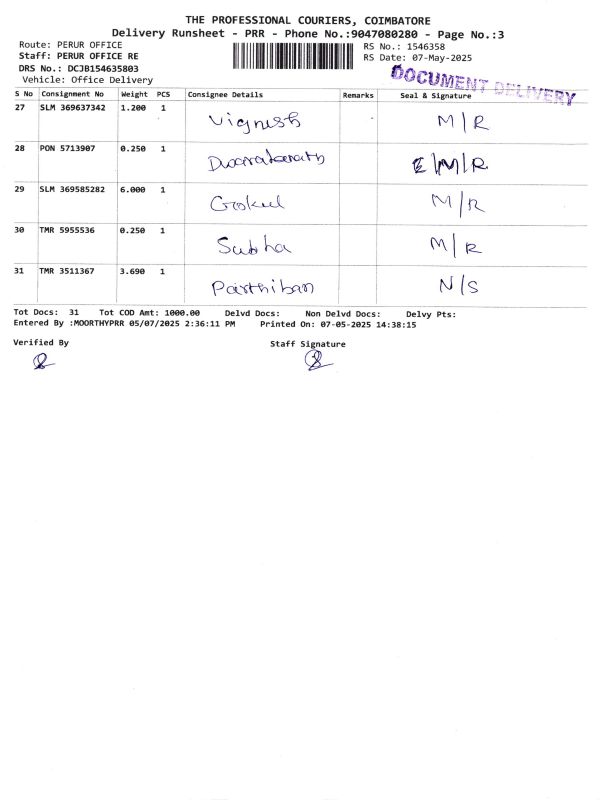 THE PROFESSIONAL COURIERS, COIMBATORE
Delivery Runsheet - PRR - Phone No.:9047080280 - Page No.:3
Route: PERUR OFFICE
RS No.: 1546358
Staff: PERUR OFFICE RE
RS Date: 07-May-2025
DRS No.: DCJB154635803
Vehicle: Office Delivery
DOCUMENT DELIVERY
S No Consignment No Weight PCS Consignee Details Remarks Seal & Signature
27 SLM 369637342 1.200 1 Vignesh M/R
28 PON 5713907 0.250 1 M/R
29 SLM 369585282 6.000 1 Gokul M/R
30 TMR 5955536 0.250 1 Subha M/R
31 TMR 3511367 3.690 1 Parthiban N/S
Tot Docs: 31 Tot COD Amt: 1000.00 Delvd Docs: Non Delvd Docs: Delvy Pts:
Entered By :MOORTHYPRR 05/07/2025 2:36:11 PM Printed On: 07-05-2025 14:38:15
Verified By Staff Signature